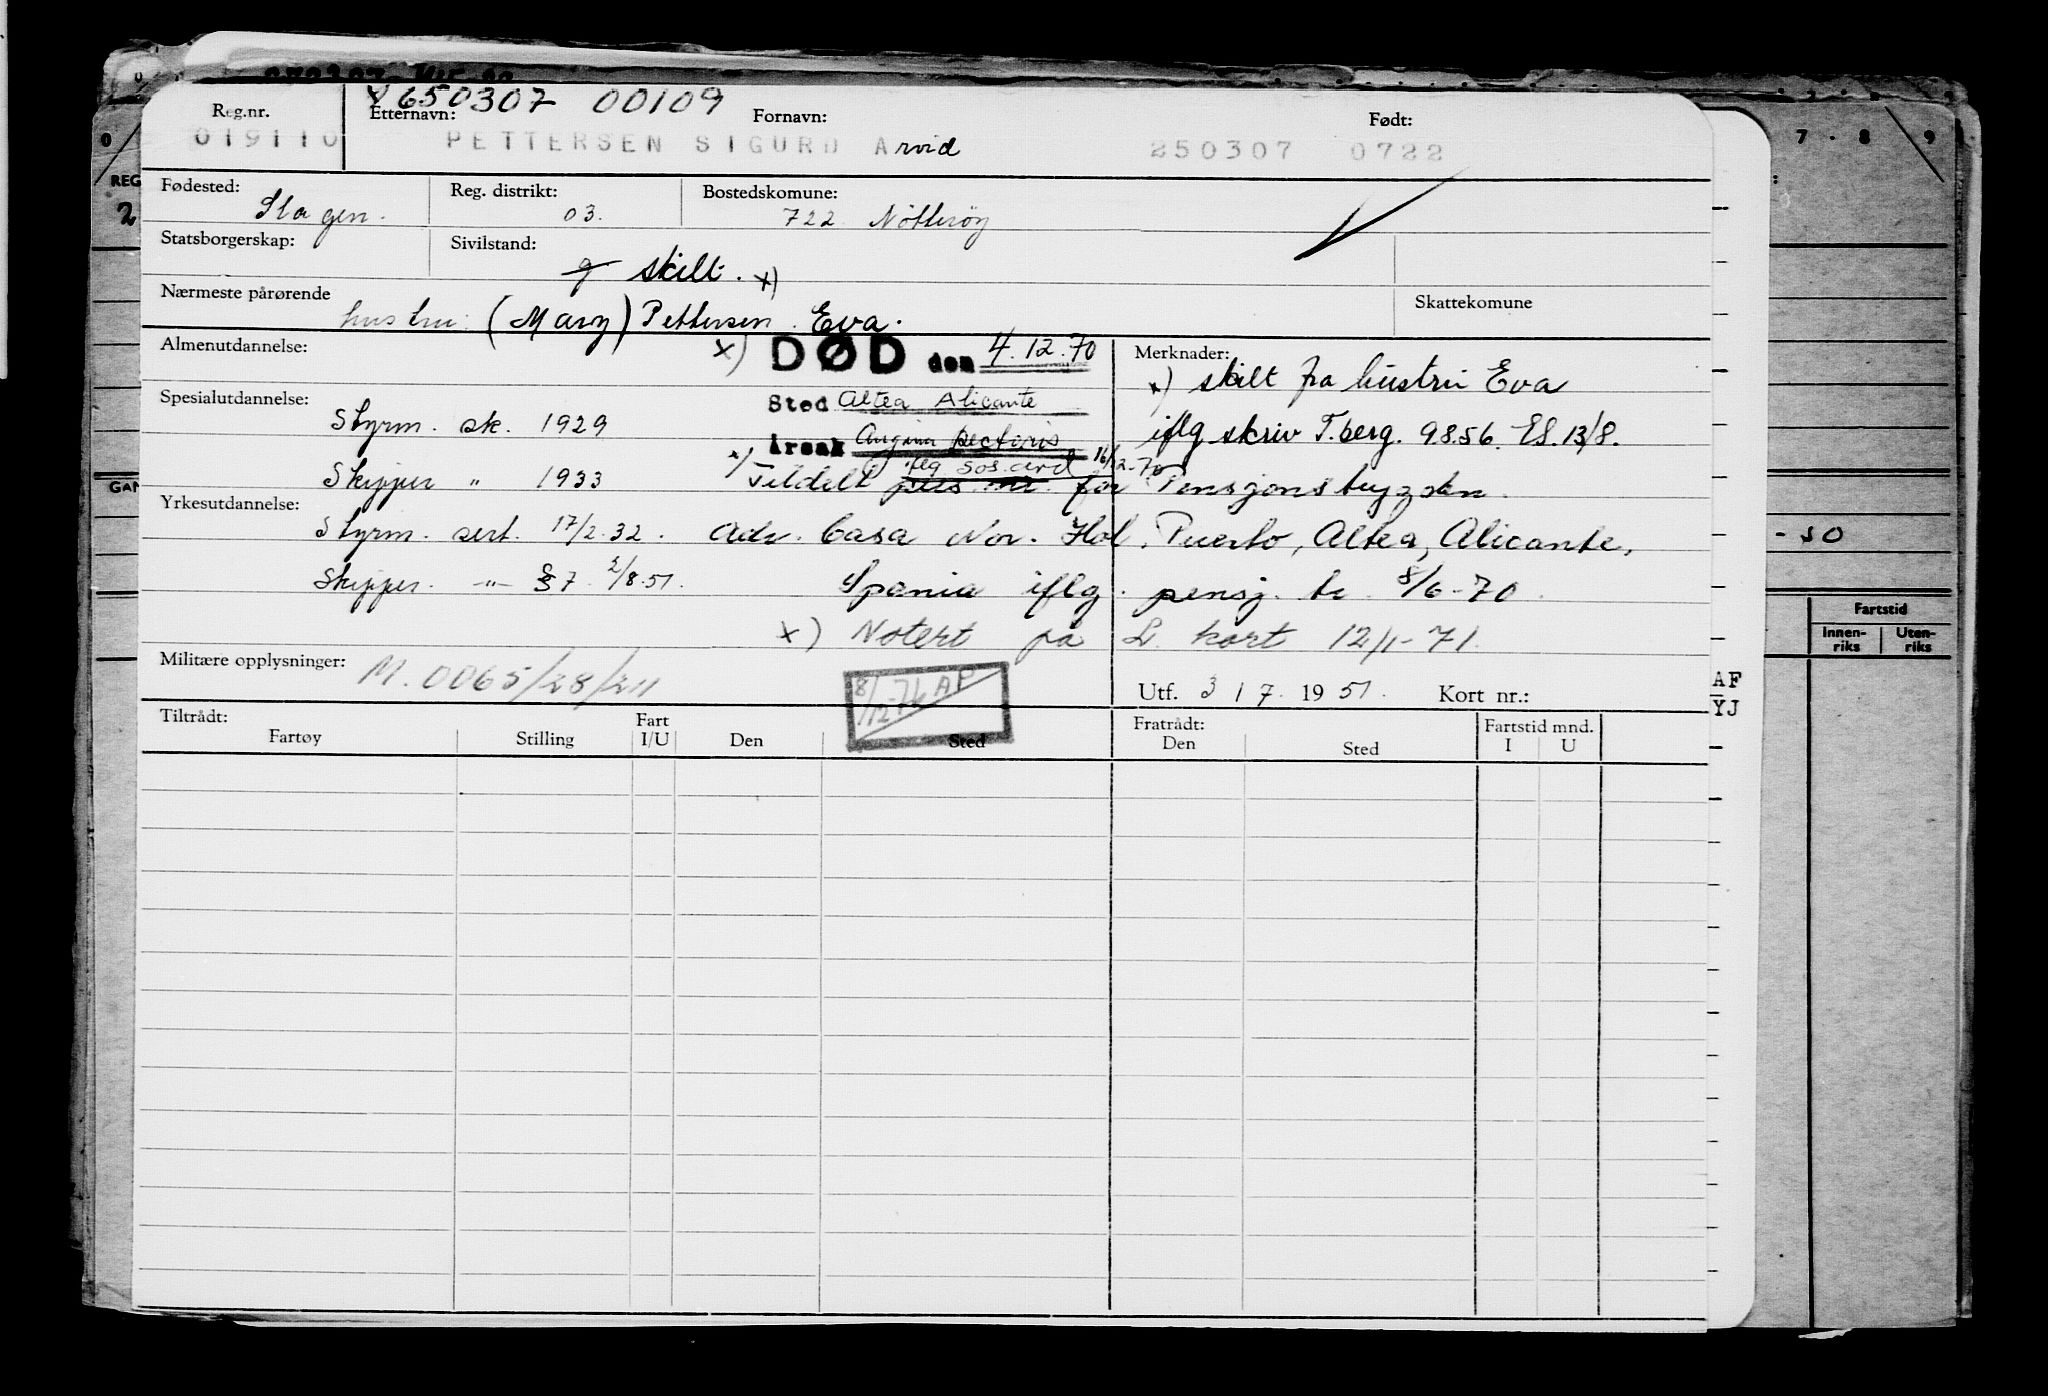 650307 00109
Reg.nr. Etternavn: Fornavn: Født:
019110 PETTERSEN SIGURD Arvid 250307 0722
Fødested: Reg. distrikt: Bostedskomune:
Slagen. 03. 722 Nøtterøy
Statsborgerskap: Sivilstand:
g skilt. x)
Nærmeste pårørende Skattekomune
hustru: (Mary) Pettersen. Eva.
Almenutdannelse: x) DØD den 4.12.70 Merknader:
x) skilt fra hustru Eva
Spesialutdannelse: Sted Altea Alicante
Styrm. sk. 1929 årsak Angina pectoris iflg skriv T.berg. 9856. ES. 13/8.
iflg sos. avd 16/12-70
Skipper " 1933 x) Tildelt pens. nr. for Pensjonstrygden.
Yrkesutdannelse:
Styrm. sert. 17/2.32. Adr. Casa Nor. Hol. Puerto, Altea, Alicante,
Skipper. -"- S7. 2/8.51. Spania iflg. pensj. tr. 8/6-70.
x) Notert på L. kort 12/1-71.
Militære opplysninger: M. 0065/28/211
8/12-76 AP
Utf. 3 / 7. 1951. Kort nr.:
Tiltrådt: Fratrådt: Fartstid mnd.
Fartøy Stilling Fart I/U Den Sted Den Sted I U
AF
YJ
7 - 8 9
REG
2
GAN
- 50
Fartstid
Innen-riks Uten-riks